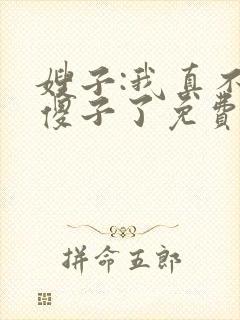 嫂子:我真不
傻子了免费
拼命五郎